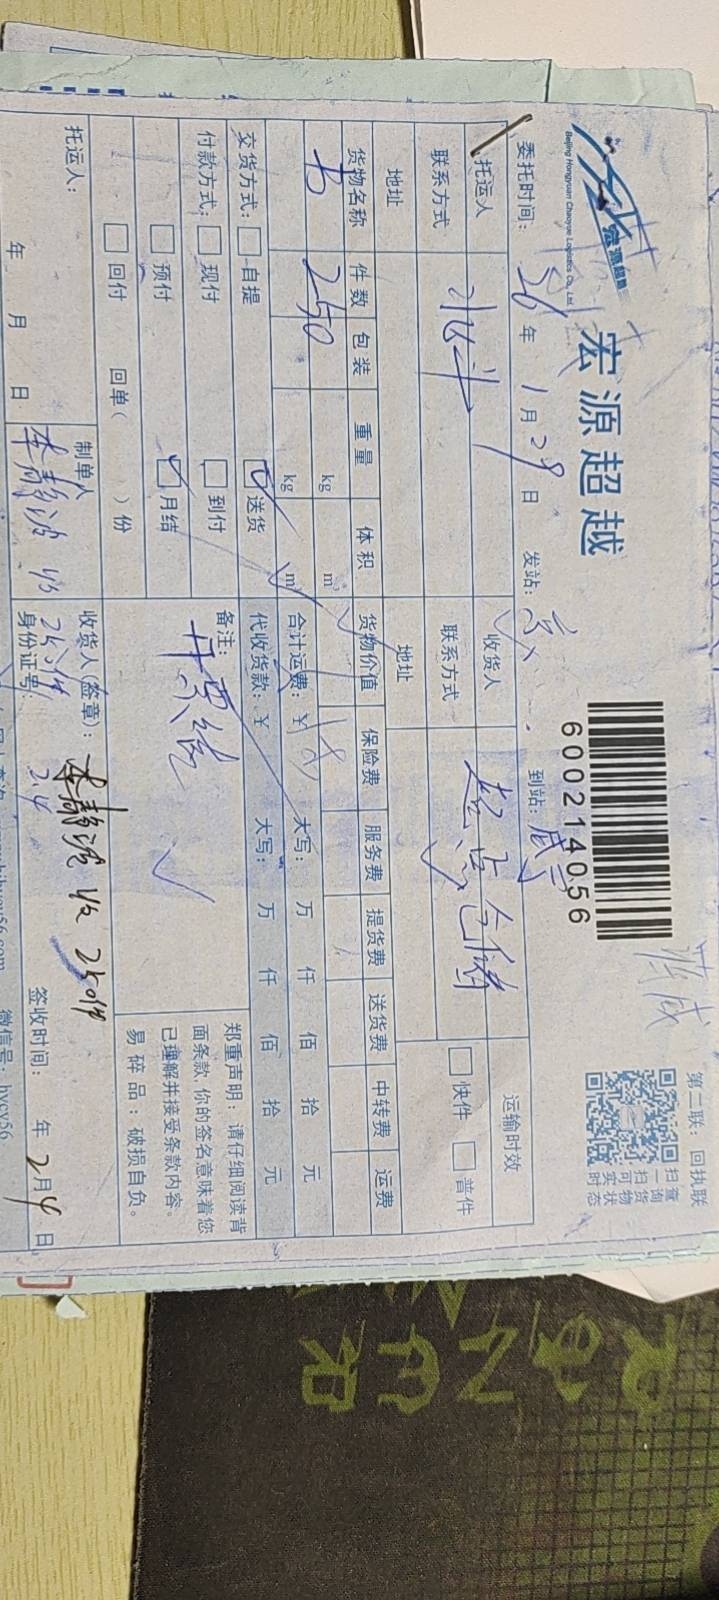 宏源超越
宏源超越
Beijing Hongyuan Chaoyue Logistics Co., Ltd.
600214056
第二联：回执联
扫一扫可查询货物实时状态
委托时间：26年1月29日 发站：京 到站：咸宁
托运人 收货人 起点仓储 运输时效
联系方式 联系方式 快件 普件
地址 地址
货物名称 件数 包装 重量 体积 货物价值 保险费 服务费 提货费 送货费 中转费 运费
书 250 kg m³
kg m³ 合计运费：¥ 大写： 万 仟 佰 拾 元
交货方式： 自提 送货 代收货款：¥ 大写： 万 仟 佰 拾 元
付款方式： 现付 到付 备注： 开票结
预付 月结
回付 回单（ ）份
郑重声明：请仔细阅读背
面条款，你的签名意味着您
已理解并接受条款内容。
易碎品：破损自负。
托运人： 制单人 收货人(签章)： 李静波 收 250件
年 月 日 李静波 收 250件 身份证号： 2.4 签收时间： 年 2月4日
微信号：hycy56